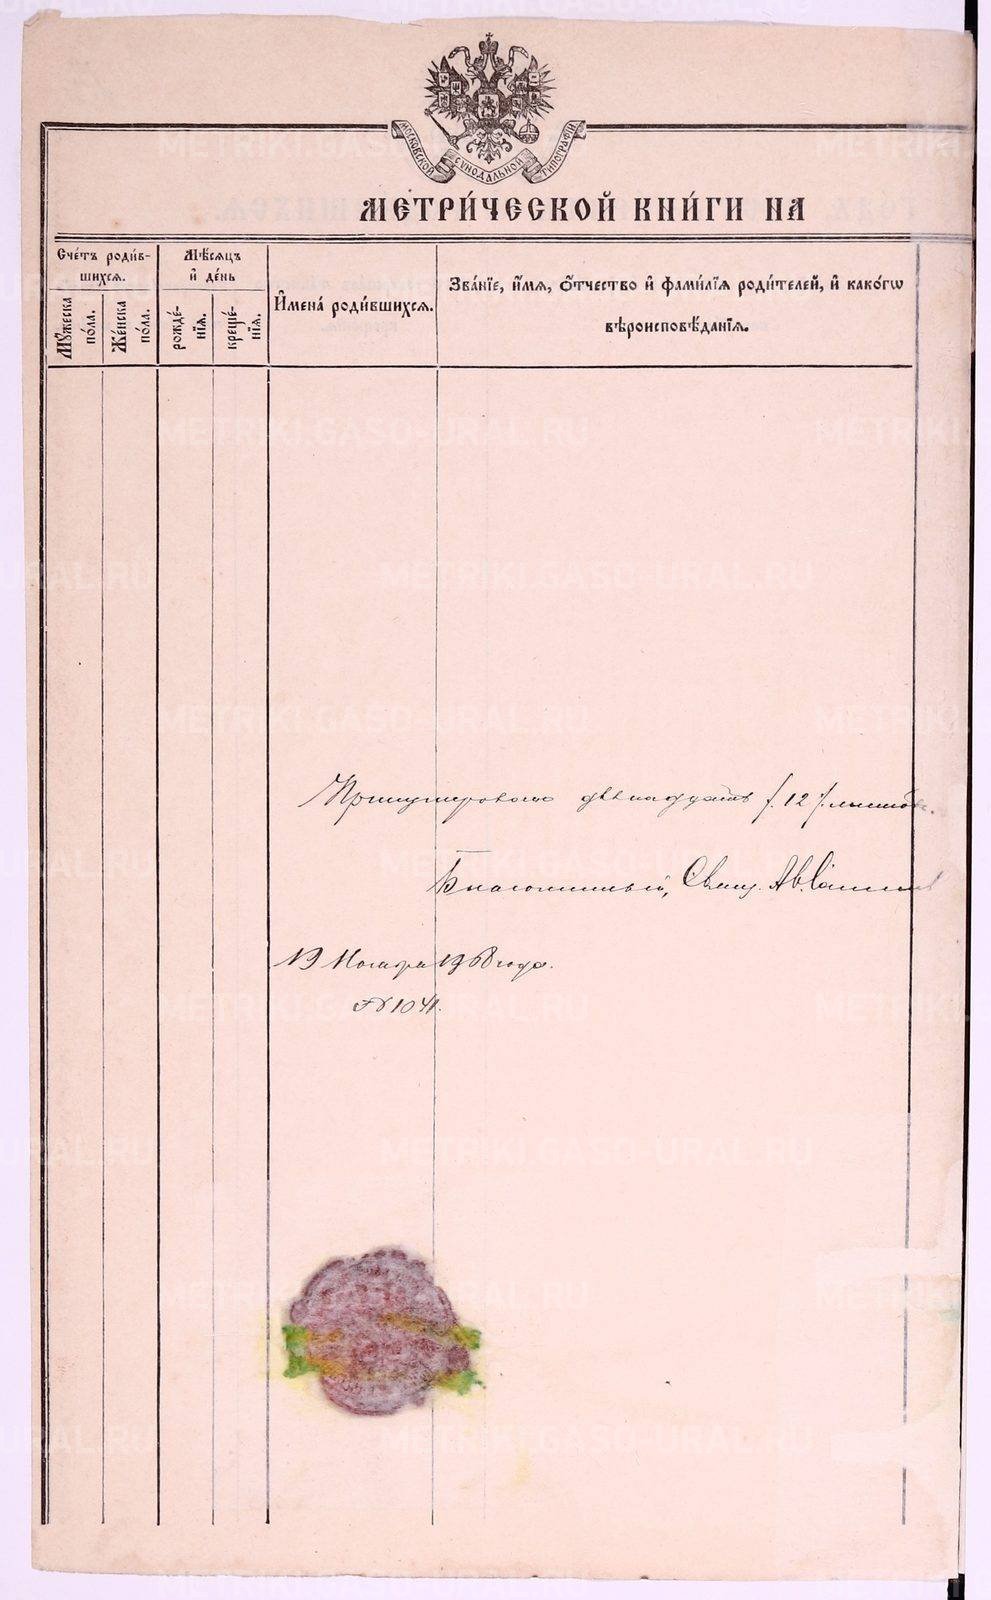 МОСКОВСКОЙ СѴНОДАЛЬНОЙ ТИПОГРАФІИ
МЕТРИ́ЧЕСКОЙ КНИ́ГИ НА
Сче́тъ роди́в-
шихсѧ.
Мѣ́сѧцъ
и҆ де́нь
И҆мена̀ роди́вшихсѧ.
Зва́нїе, и҆́мѧ, ѻ҆́тчество и҆ фами́лїѧ роди́телей, и҆ како́гѡ
вѣроисповѣ́данїѧ.
Мꙋ́жеска
по́ла.
Же́нска
по́ла.
рожде́-
нїѧ.
креще́-
нїѧ.
Пронумеровано двѣнадцать /. 12 /. листовъ.
Благочинный, Свящ. Ав.
19 Ноября 1908 года.
№ 1041.
METRIKI.GASO-URAL.RU